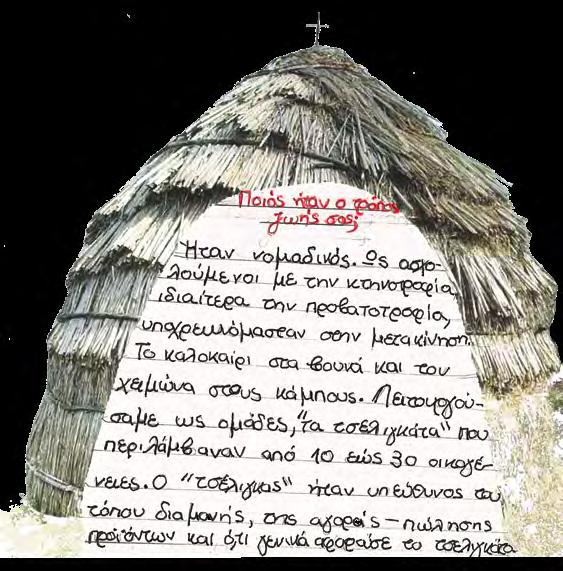 Ποιός ήταν ο τρόπος
ζωής σας;
Ήταν νομαδικός. Ως ασχο-
λούμενοι με την κτηνοτροφία,
ιδιαίτερα την προβατοτροφία,
υποχρεωνόμασταν στην μετακίνηση.
Το καλοκαίρι στα βουνά και τον
χειμώνα στους κάμπους. Λειτουργού-
σαμε ως ομάδες, "τα τσελιγκάτα" που
περιλάμβαναν από 10 εώς 30 οικογέ-
νειες. Ο "τσέλιγκας" ήταν υπεύθυνος του
τόπου διαμονής, της αγοράς - πώλησης
προϊόντων και ό,τι γενικά αφορούσε το τσελιγκάτο